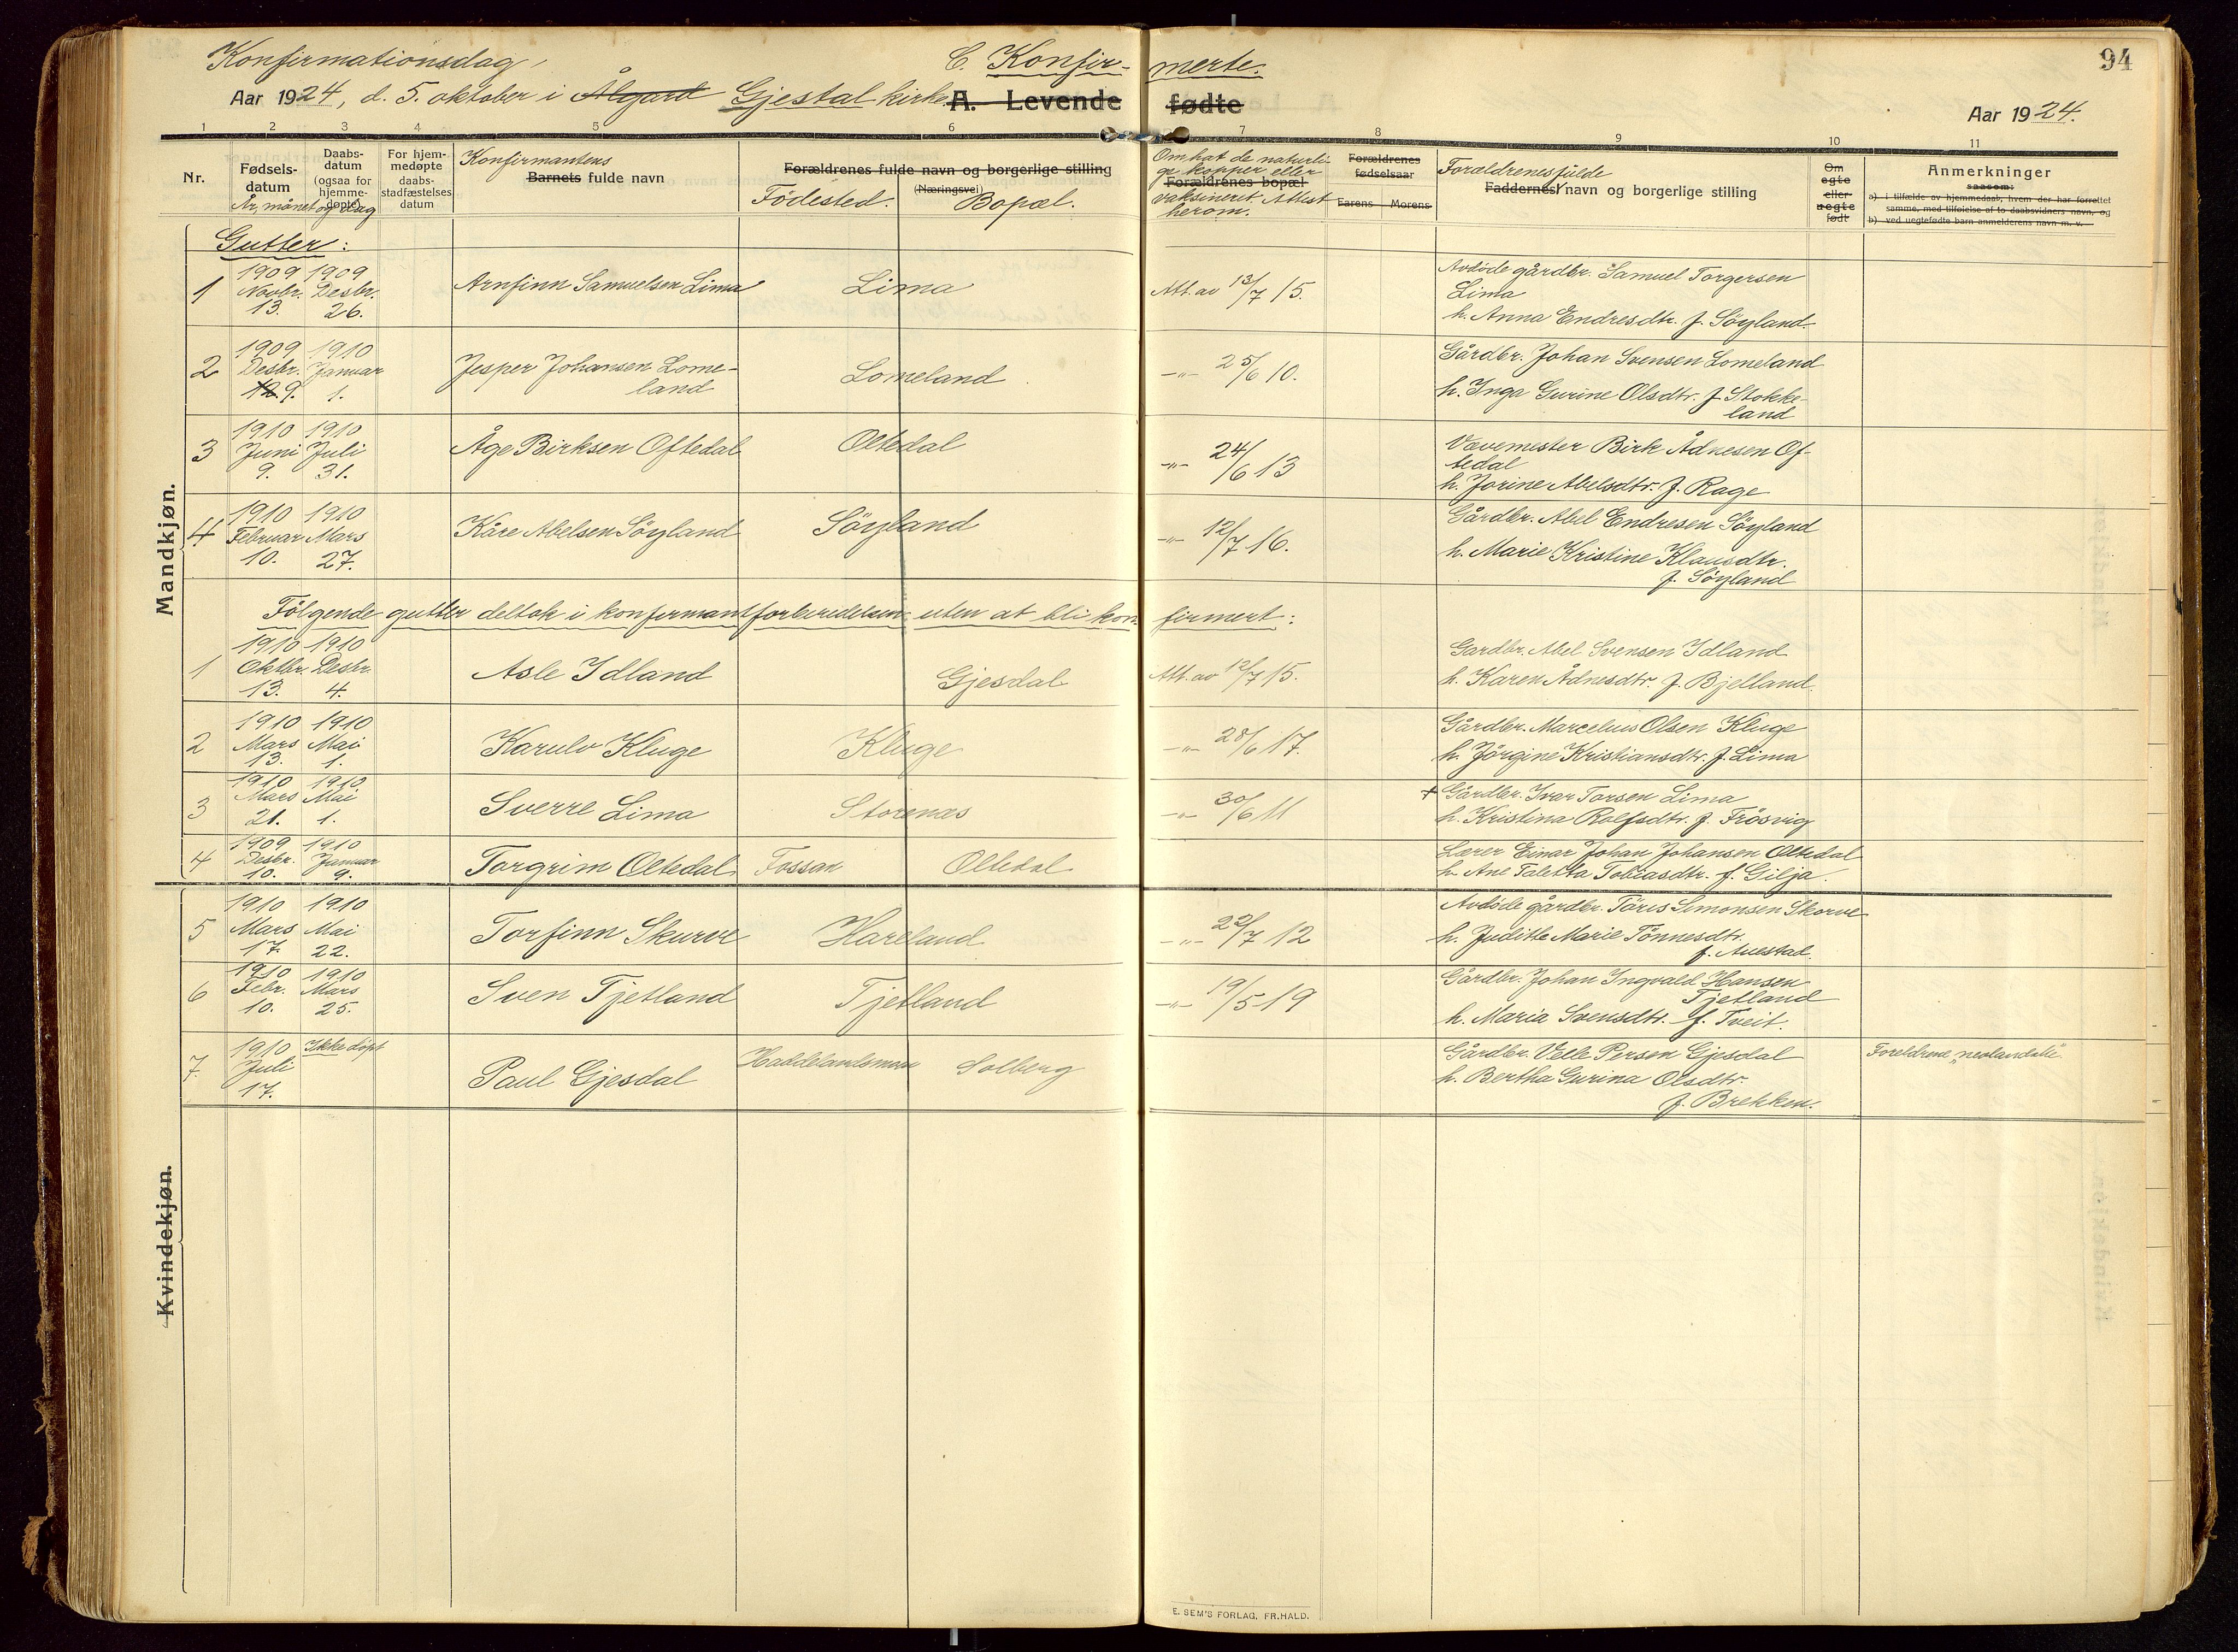 Konfirmationsdag,
C. Konfir- merte.
94
Aar 1924, d. 5. oktober i Ålgård Gjestal kirke. A. Levende fødte
Aar 1924.
1 2 3 4 5 6 7 8 9 10 11
Nr.
Fødsels-
datum
År, månet og dag
Daabs-
datum
(ogsaa for
hjemme-
døpte)
For hjem-
medøpte
daabs-
stadfæstelses
datum
Konfirmantens
Barnets fulde navn
Forældrenes fulde navn og borgerlige stilling
(Næringsvei)
Födested. Bopæl.
Om hat de naturli-
ge kopper eller
Forældrenes bopæl
vaksineret. Attest
herom.
Forældrenes
fødselsaar
Farens Morens
Forældrenes fulde
Faddernes navn og borgerlige stilling
Om
egte
eller
uegte
født
Anmerkninger
saasom:
a) i tilfælde av hjemmedaab, hvem der har forrettet
samme, med tilføielse af to daabsvidners navn, og
b) ved uegtefødte barn anmelderens navn m. v.
Mandkjøn.
Gutter:
1 1909 Novbr. 13. 1909 Desbr. 26. Arnfinn Samuelsen Lima Lima Att. av 13/7 15. Avdöde gårdbr. Samuel Torgersen
Lima
h. Anna Endresdtr. f. Söyland.
2 1909 Desbr. 12 9. 1910 Januar 1. Jesper Johansen Lome-
land Lomeland -"- 25/6 10. Gårdbr. Johan Svensen Lomeland
h. Inga Gurine Olsdtr. f. Stokke-
land
3 1910 Juni 9. 1910 Juli 31. Åge Birksen Oftedal Oltedal -"- 24/6 13 Vævemester Birk Ådnesen Of-
tedal
h. Jorine Abelsdtr. f. Rage
4 1910 Februar 10. 1910 Mars 27. Kåre Abelsen Söyland Söyland -"- 12/7 16. Gårdbr. Abel Endresen Söyland
h. Marie Kristine Klausdtr.
f. Söyland
Fölgende gutter deltok i konfirmantforberedelsen uten at bli kon- firmert:
1 1910 Oktbr. 13. 1910 Desbr. 4. Asle Idland Gjesdal Att. av 12/7 15. Gardbr. Abel Svensen Idland
h. Karen Ådnesdtr. f. Bjelland.
2 1910 Mars 13. 1910 Mai 1. Karulv Kluge Kluge -"- 28/6 17. Gårdbr. Marcelius Olsen Kluge
h. Jörgine Kristiansdtr. f. Lima
3 1910 Mars 21. 1910 Mai 1. Sverre Lima Storenæs -"- 30/6 11 + Gårdbr. Ivar Torsen Lima
h. Kristina Rolfsdtr. f. Frösvig
4 1909 Desbr. 10. 1910 Januar 9. Torgrim Oltedal Fossan Oltedal Lærer Einar Johan Johansen Oltedal
h. Ane Taletta Tobiasdtr. f. Gilja.
Kvindekjøn.
5 1910 Mars 17. 1910 Mai 22. Torfinn Skurve Hareland -"- 22/7 12 Avdöde gårdbr. Töres Simonsen Skorve
h. Judithe Marie Tönnesdtr.
f. Auestad.
6 1910 Febr. 10. 1910 Mars 25. Sven Tjetland Tjetland -"- 19/5 19 Gårdbr. Johan Ingvald Hansen
Tjetland
h. Maria Svensdtr. f. Tveit.
7. 1910 Juli 17. Ikke döpt Paul Gjesdal Solberg Gårdbr. Velle Persen Gjesdal
h. Bertha Gurina Olsdtr.
f. Brekken.
Foreldrene
E. SEM'S FORLAG, FR.HALD.